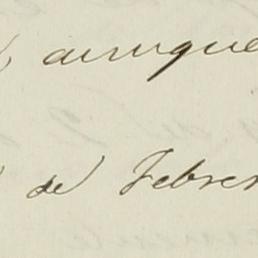 aunque
de Febrer